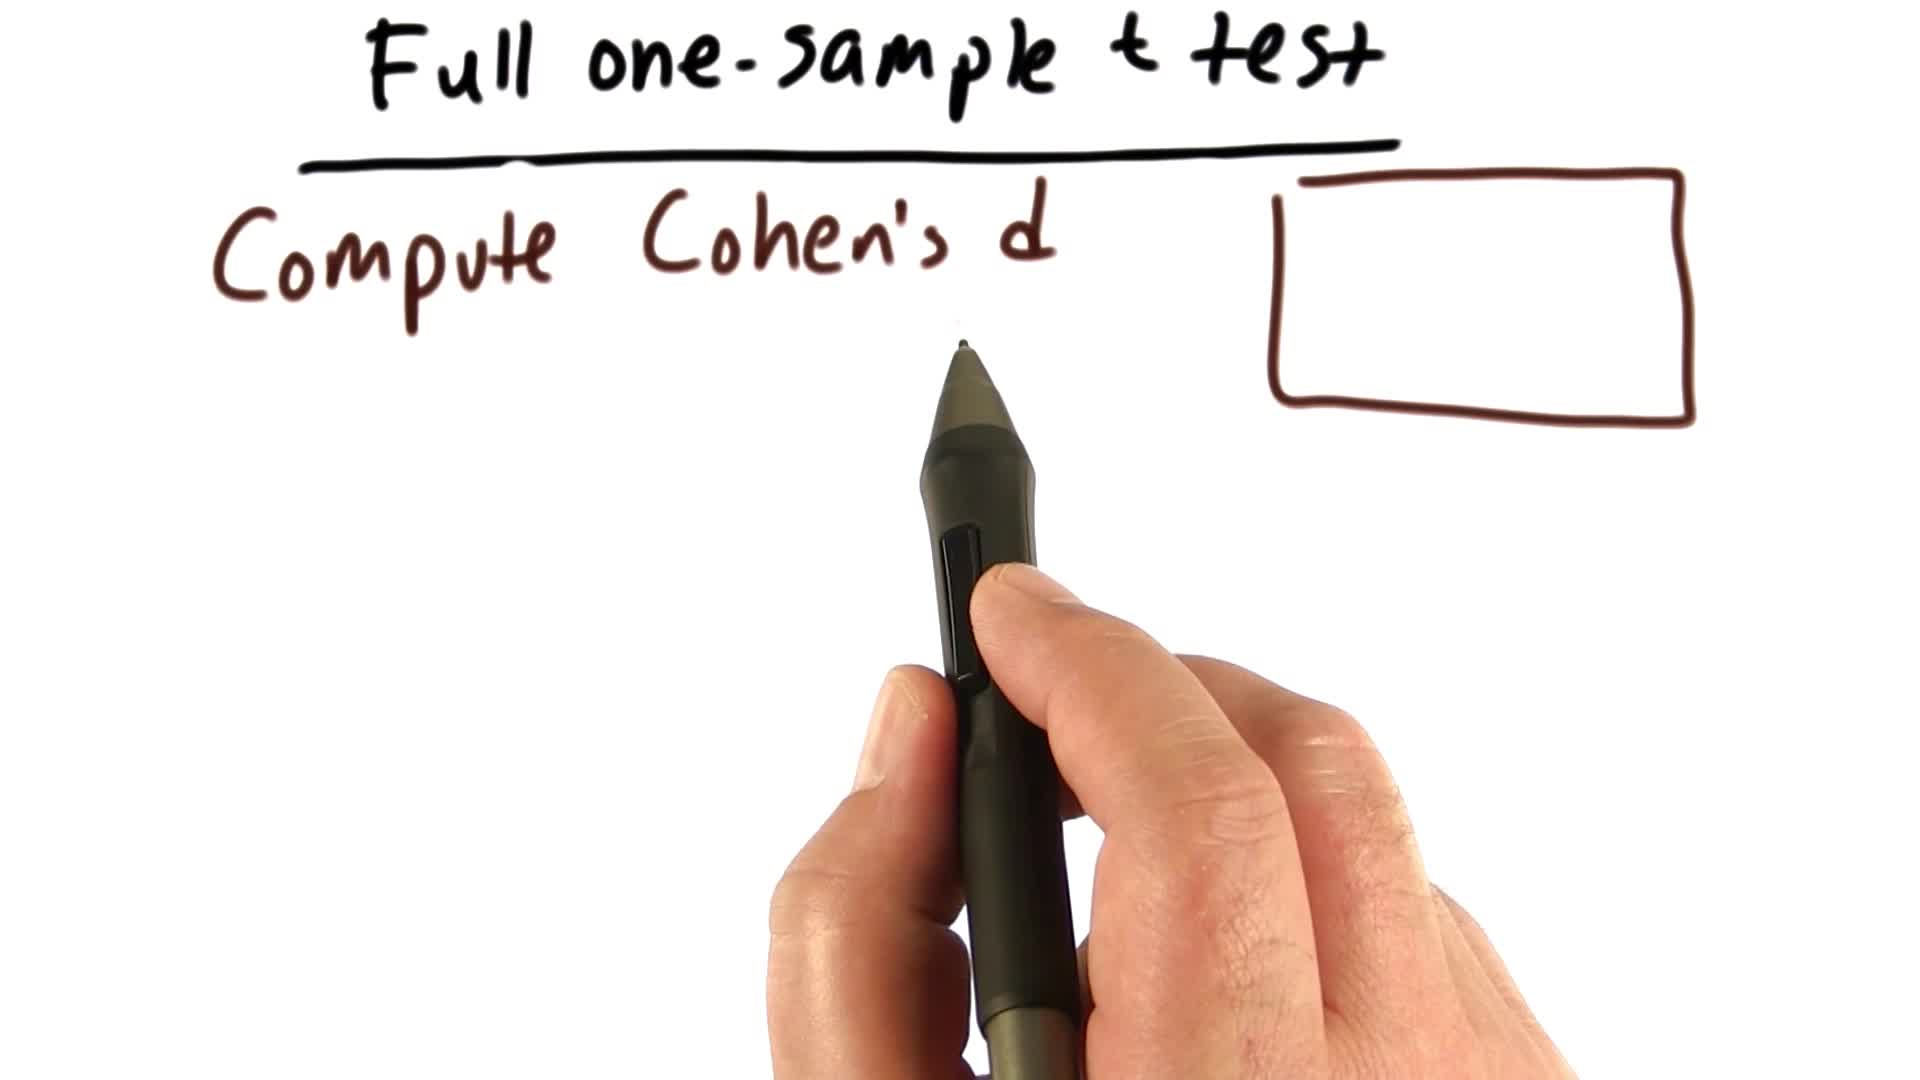 Full one-sample t test
Compute Cohen's d